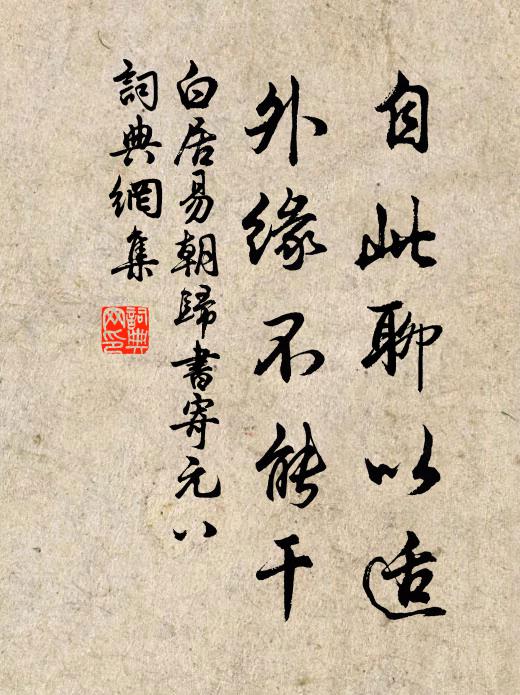 自此聊以适
外緣不能干
白居易朝歸書寄元八
詞典網集
詞典网印